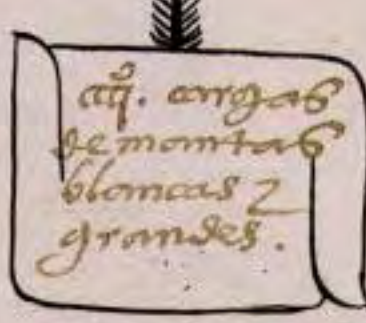 ccccº. cargas
de mantas
blancas y
grandes.